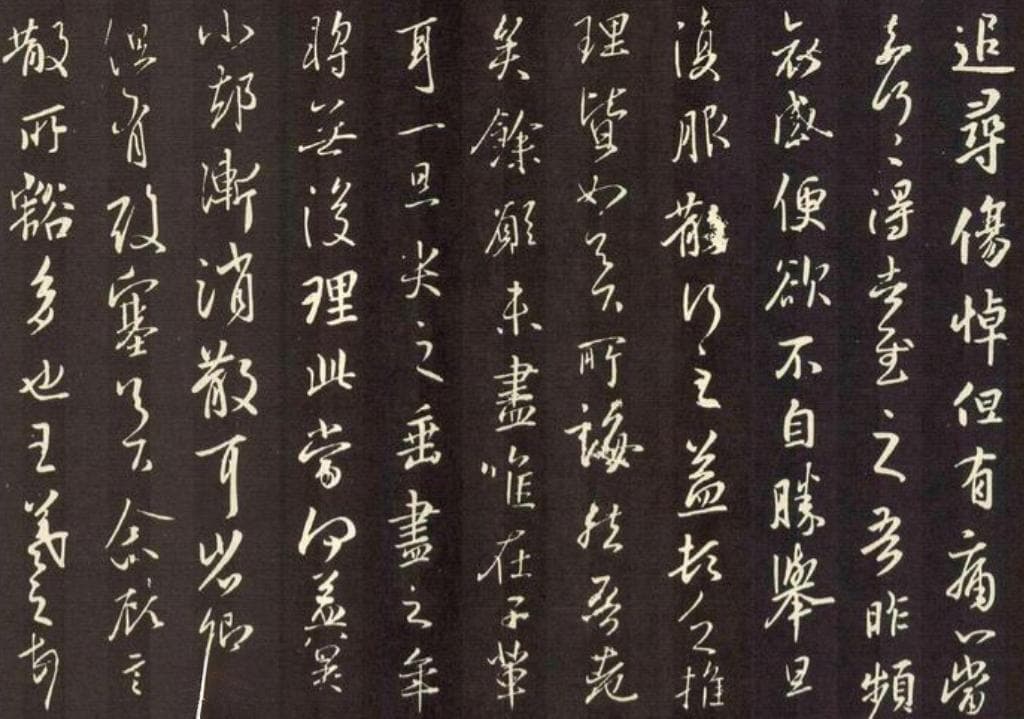 追尋傷悼但有痛心當
奈何々得告慰之吾昨頻
哀感便欲不自勝舉旦
復服散行之益頓乏推
理皆如足下所誨然吾老
矣餘願未盡唯在子輩
耳一旦哭之垂盡之年
將無復理此當何益冀
小卻漸消散耳省卿
但有酸塞足下念顧言
散所豁多也王羲之頓首